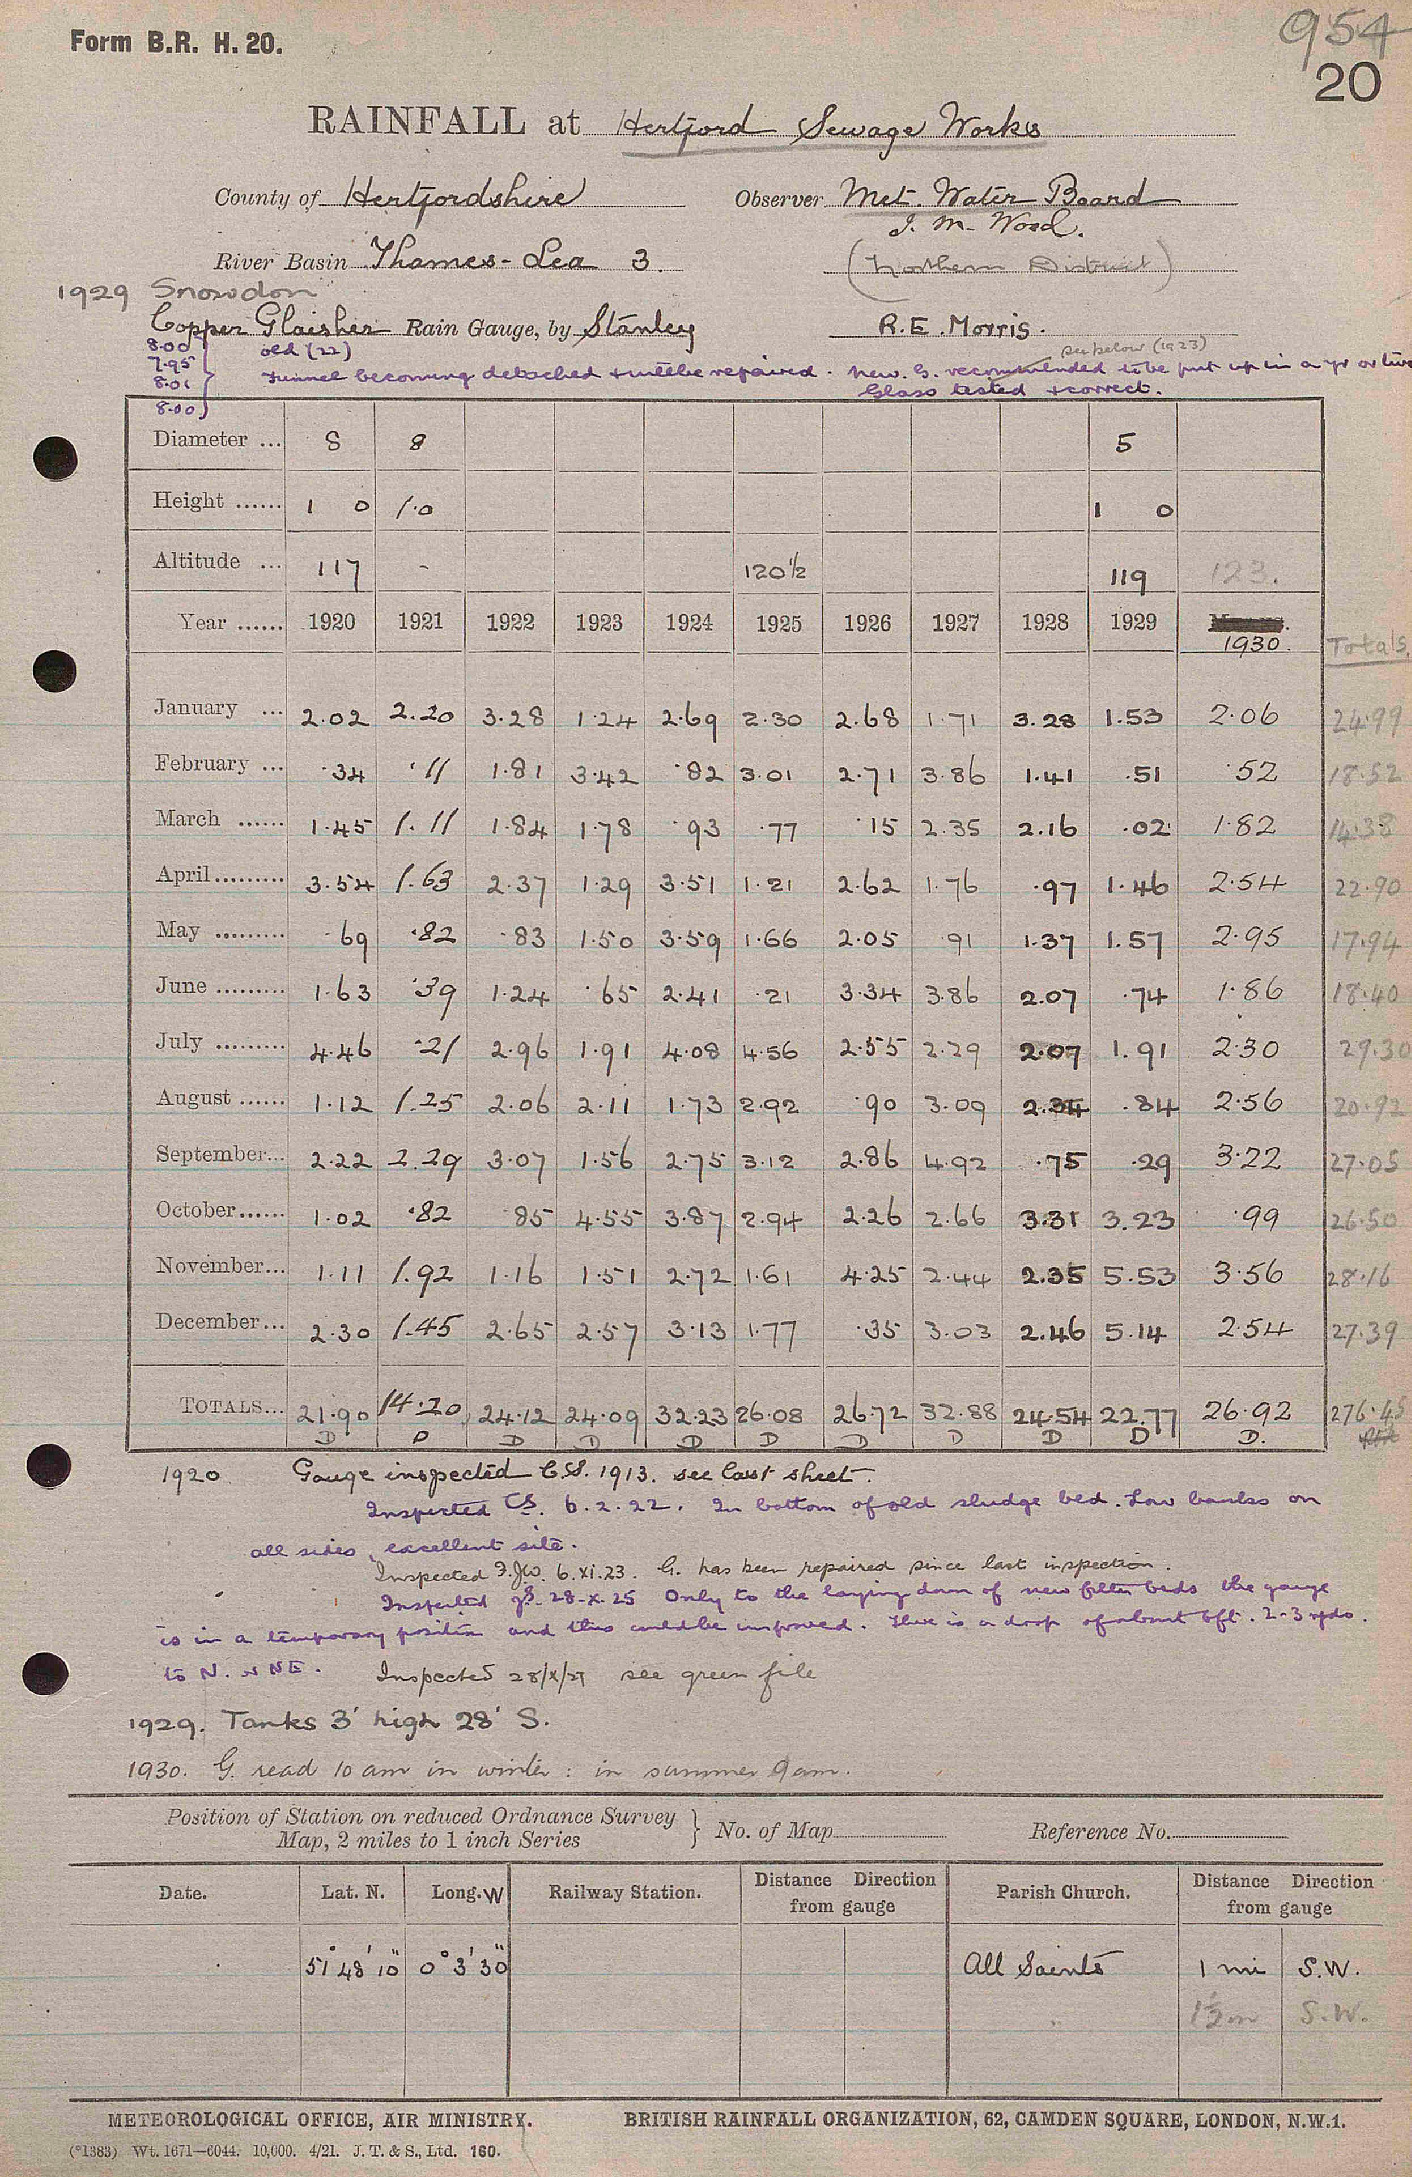 Form B.R. H. 20.
954
20
RAINFALL at Hertford Sewage Works
County of Hertfordshire Observer Met. Water Board
J. M. Wood.
River Basin Thames - Lea 3. (Northern District)
1929 Snowdon
Copper Glaisher Rain Gauge, by Stanley R.E. Morris.
8.00 old (22) see below (1923)
7.95 Funnel becoming detached & will be repaired. New G. recommended to be put up in a yr or two
8.01 Glass tested & correct.
8.00
Diameter ... 8 8 5
Height ...... 1 0 1.0 1 0
Altitude ... 117 - 120½ 119 123.
Year ...... 1920 1921 1922 1923 1924 1925 1926 1927 1928 1929 1930. Totals.
January ... 2.02 2.20 3.28 1.24 2.69 2.30 2.68 1.71 3.28 1.53 2.06 24.99
February ... .34 .11 1.81 3.42 .82 3.01 2.71 3.86 1.41 .51 .52 18.52
March ...... 1.45 1.11 1.84 1.78 .93 .77 .15 2.35 2.16 .02 1.82 14.38
April ......... 3.54 1.63 2.37 1.29 3.51 1.21 2.62 1.76 .97 1.46 2.54 22.90
May ......... .69 .82 .83 1.50 3.59 1.66 2.05 .91 1.37 1.57 2.95 17.94
June ......... 1.63 .39 1.24 .65 2.41 .21 3.34 3.86 2.07 .74 1.86 18.40
July ......... 4.46 .21 2.96 1.91 4.08 4.56 2.55 2.29 2.07 1.91 2.30 29.30
August ...... 1.12 1.25 2.06 2.11 1.73 2.92 .90 3.09 2.34 .84 2.56 20.92
September... 2.22 2.29 3.07 1.56 2.75 3.12 2.86 4.92 .75 .29 3.22 27.05
October...... 1.02 .82 .85 4.55 3.87 2.94 2.26 2.66 3.31 3.23 .99 26.50
November... 1.11 1.92 1.16 1.51 2.72 1.61 4.25 2.44 2.35 5.53 3.56 28.16
December... 2.30 1.45 2.65 2.57 3.13 1.77 .35 3.03 2.46 5.14 2.54 27.39
TOTALS... 21.90 14.20 24.12 24.09 32.23 26.08 26.72 32.88 24.54 22.77 26.92 276.45
D D D D D D D D D D D.
1920 Gauge inspected C.S. 1913. see last sheet.
Inspected CS. 6.2.22. In bottom of old sludge bed. Low banks on
all sides, excellent site.
Inspected 6.xi.23. G. has been repaired since last inspection.
Inspected 28-X-25 Only to the laying down of new filter beds the gauge
is in a temporary position and this could be improved. There is a drop of about 6ft. 2-3 yds.
to N. & NE. Inspected 28/X/27 see green file
1929. Tanks 3' high 28' S.
1930. G. read 10 am in winter : in summer 9am.
Position of Station on reduced Ordnance Survey
Map, 2 miles to 1 inch Series } No. of Map Reference No.
Date. Lat. N. Long. W Railway Station. Distance Direction from gauge Parish Church. Distance Direction from gauge
51° 48' 10" 0° 3' 30" All Saints 1 mi S.W.
1½ m S.W.
METEOROLOGICAL OFFICE, AIR MINISTRY. BRITISH RAINFALL ORGANIZATION, 62, CAMDEN SQUARE, LONDON, N.W.1.
(*1383) Wt. 1671—6044. 10,000. 4/21. J. T. & S., Ltd. 160.